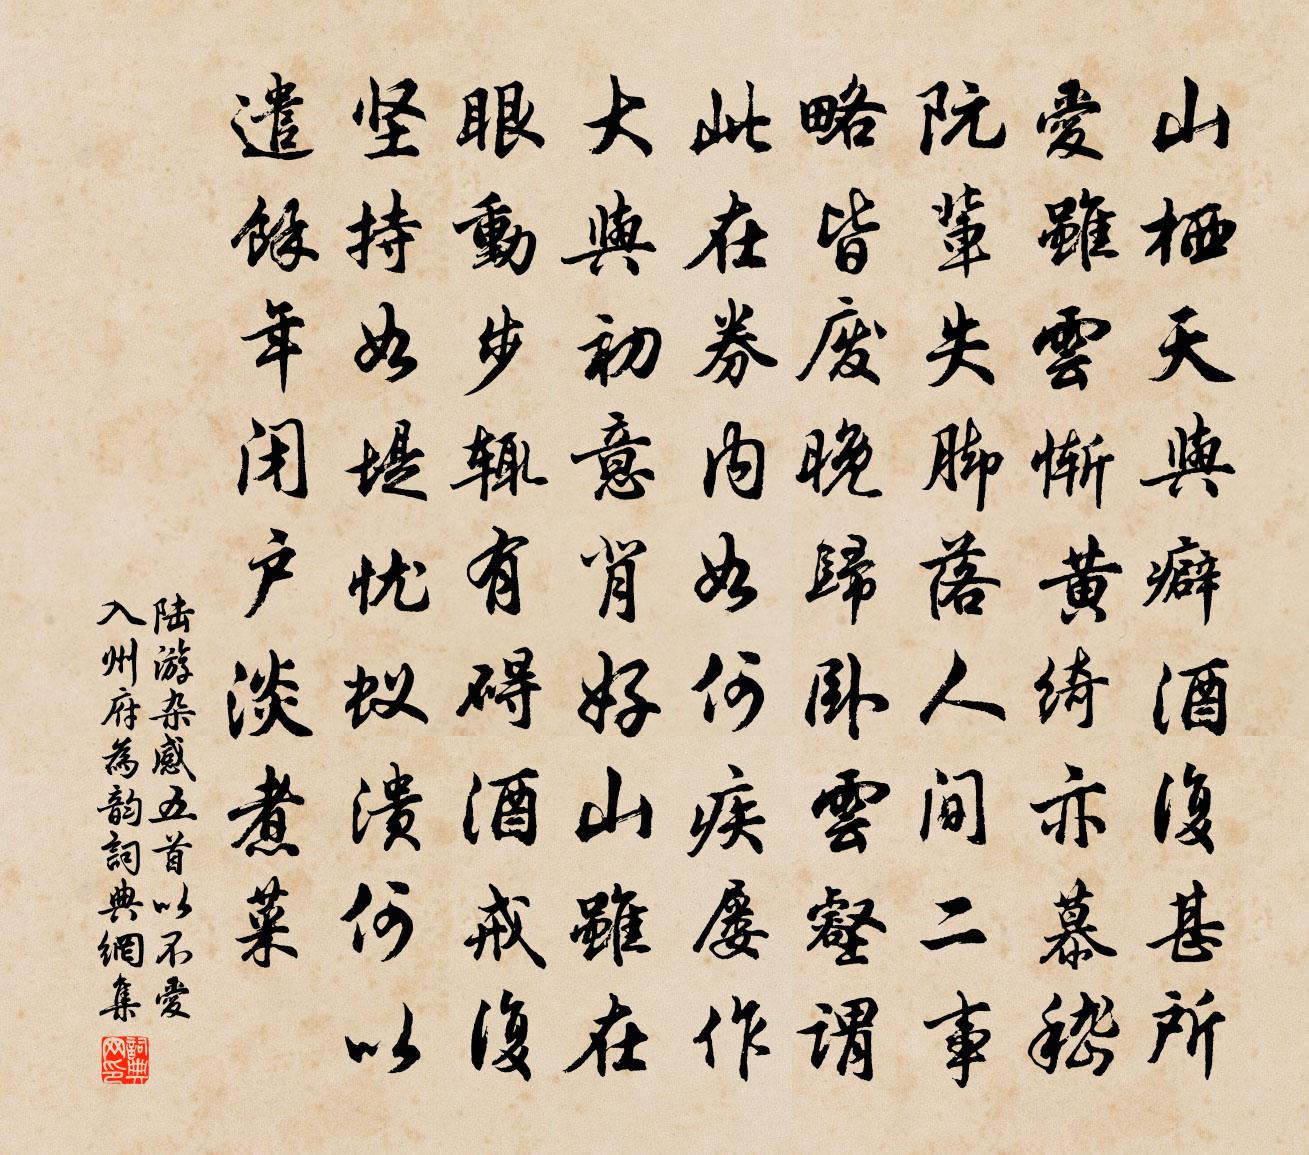 山栖天與癖酒復甚所
愛雖雲慚黄綺亦慕嵇
阮輩失脚落人间二事
略皆废晚歸卧雲壑謂
此在券内如何疾屡作
大與初意背好山雖在
眼動步辄有碍酒戒復
坚持如堤忧蚁溃何以
遣馀年闭户淡煮菜
陆游杂感五首以不愛
入州府為韵詞典網集
詞典网印